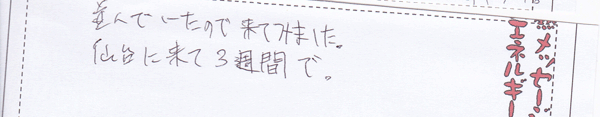 並んでいたので来てみました。
仙台に来て3週間で。
メッセージ
エネルギー